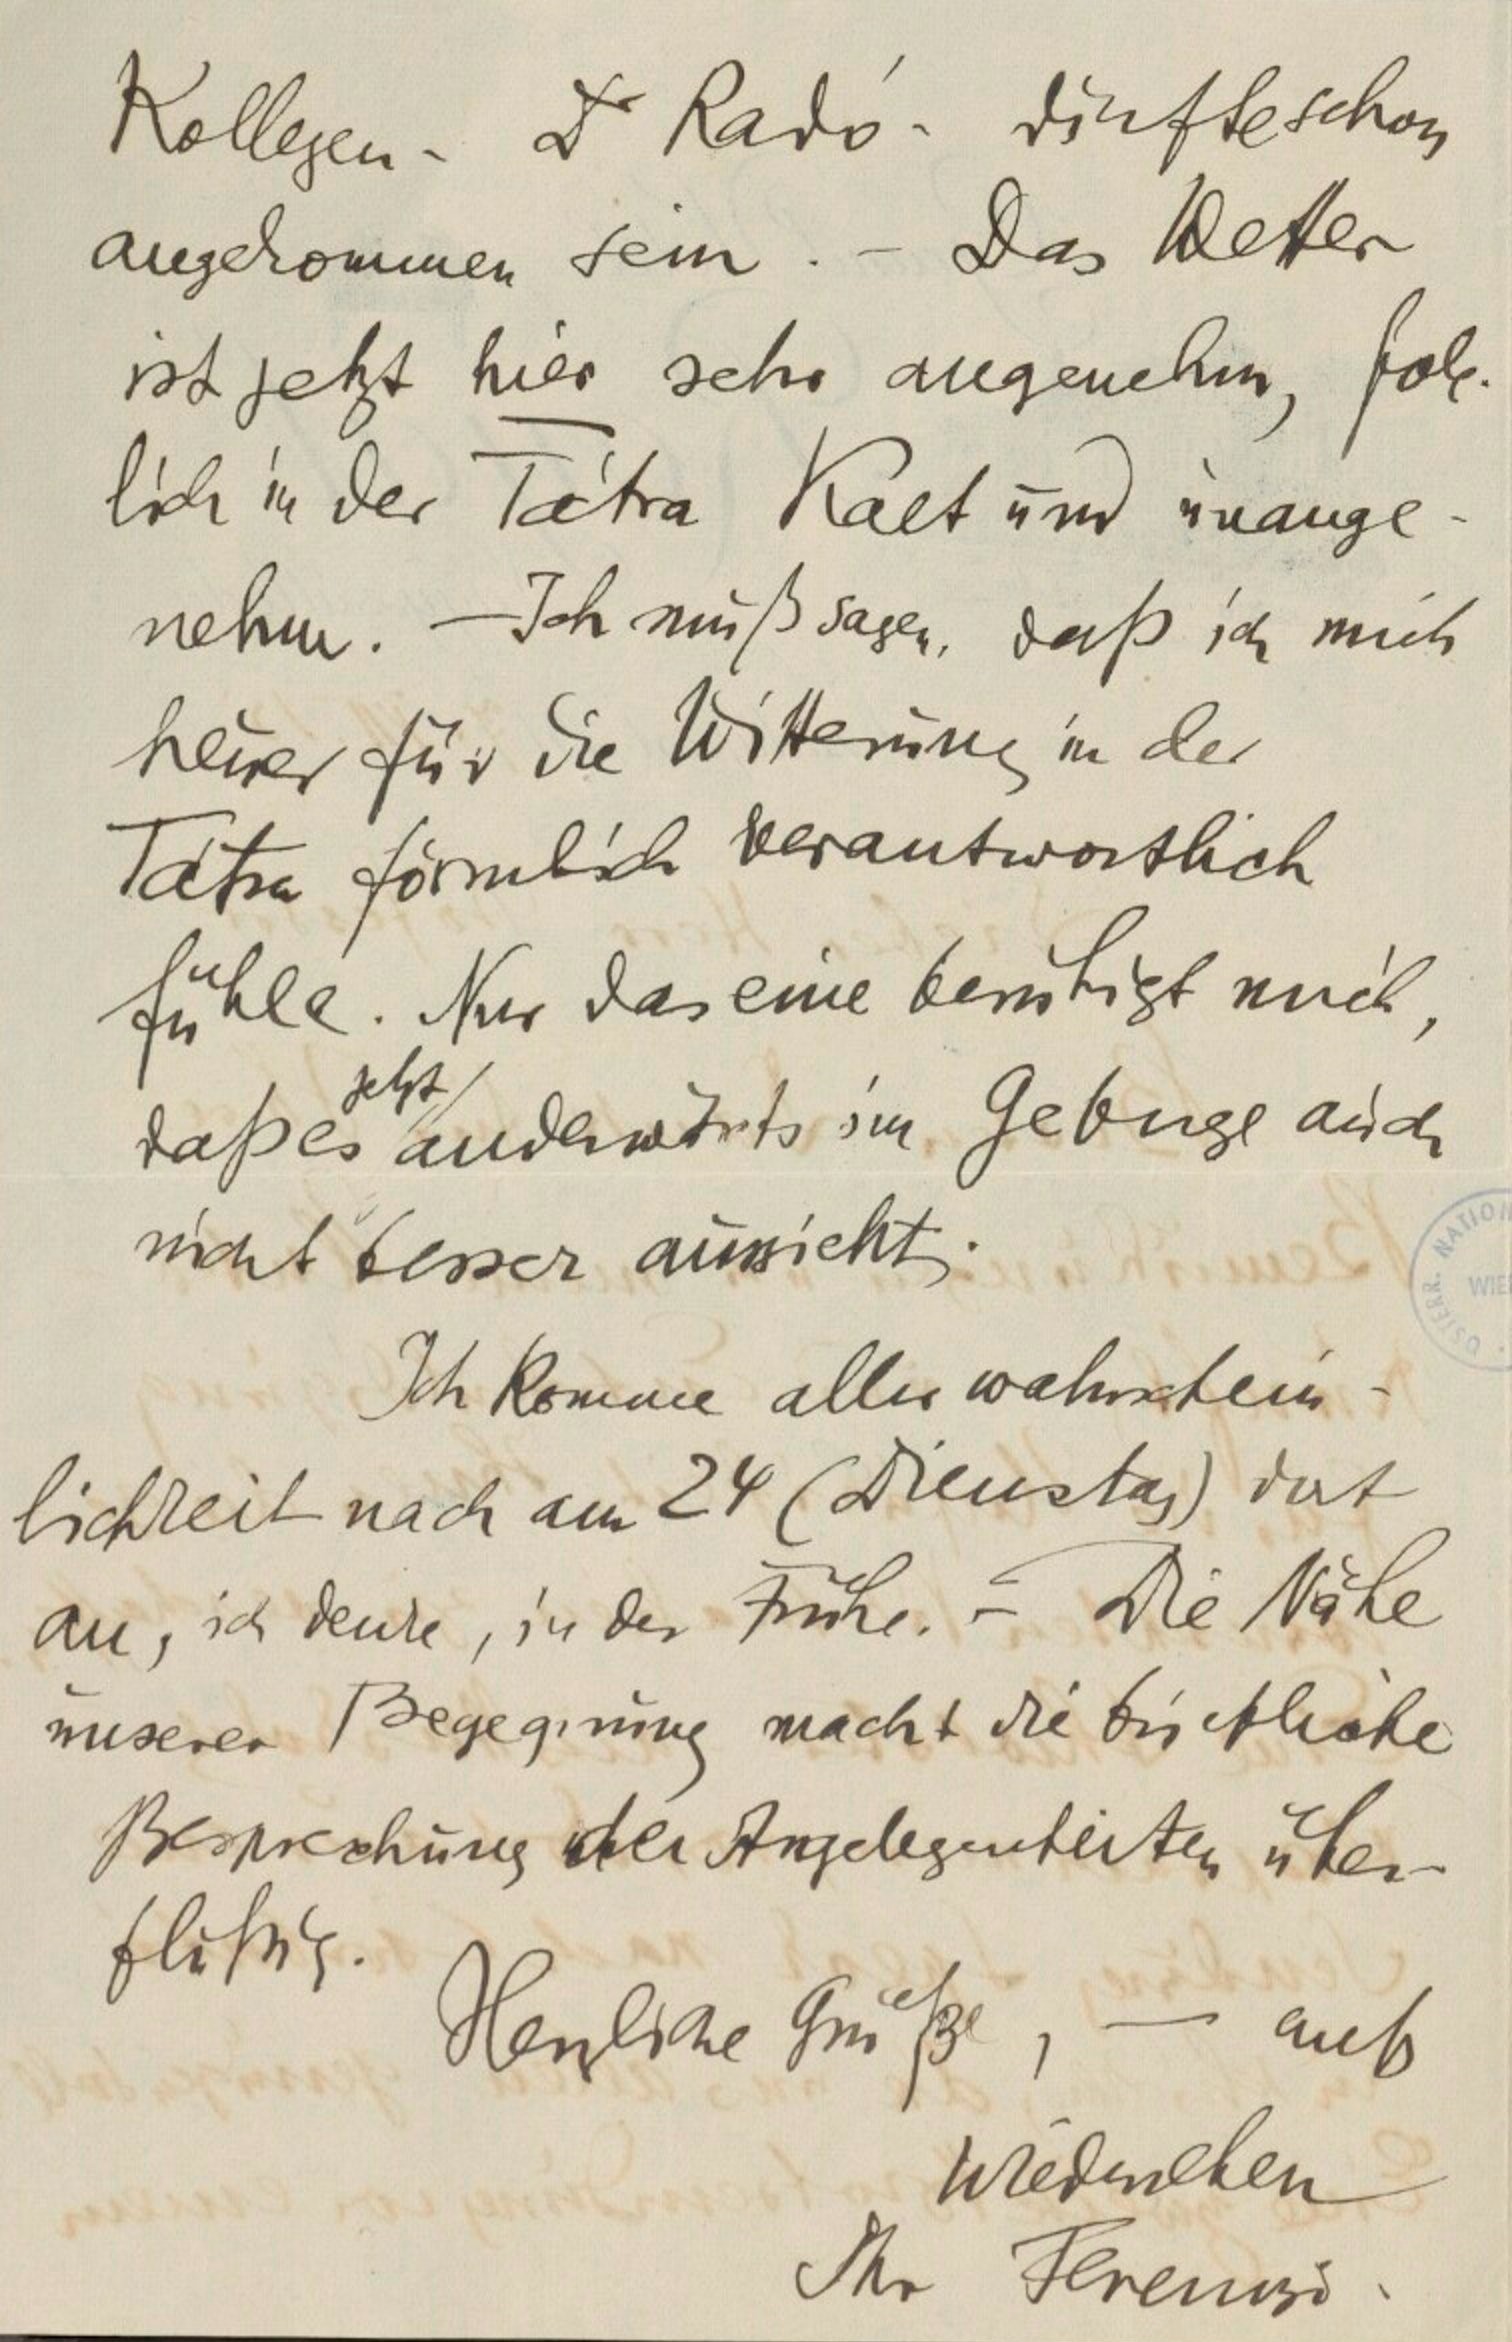 Kollegen - Dr Radó - dürfte schon
angekommen sein. - Das Wetter
ist jetzt hier sehr angenehm, folg-
lich in der Tátra Kalt und unange-
nehm. - Ich muß sagen, daß ich mich
heuer für die Witterung in der
Tátra förmlich verantwortlich
fühle. Nur das eine beruhigt mich,
daß es jetzt anderwärts im Gebirge auch
nicht besser aussieht.
Ich komme aller wahrschein-
lichkeit nach am 24 (Dienstag) dort
an, ich denke, in der Frühe. - Die Nähe
unserer Begegnung macht die briefliche
Besprechung der Angelegenheiten über-
flüßig.
Herzliche Grüße, - auf
Wiedersehen
Ihr Ferenczi.
ÖSTERR. NATION
WIE